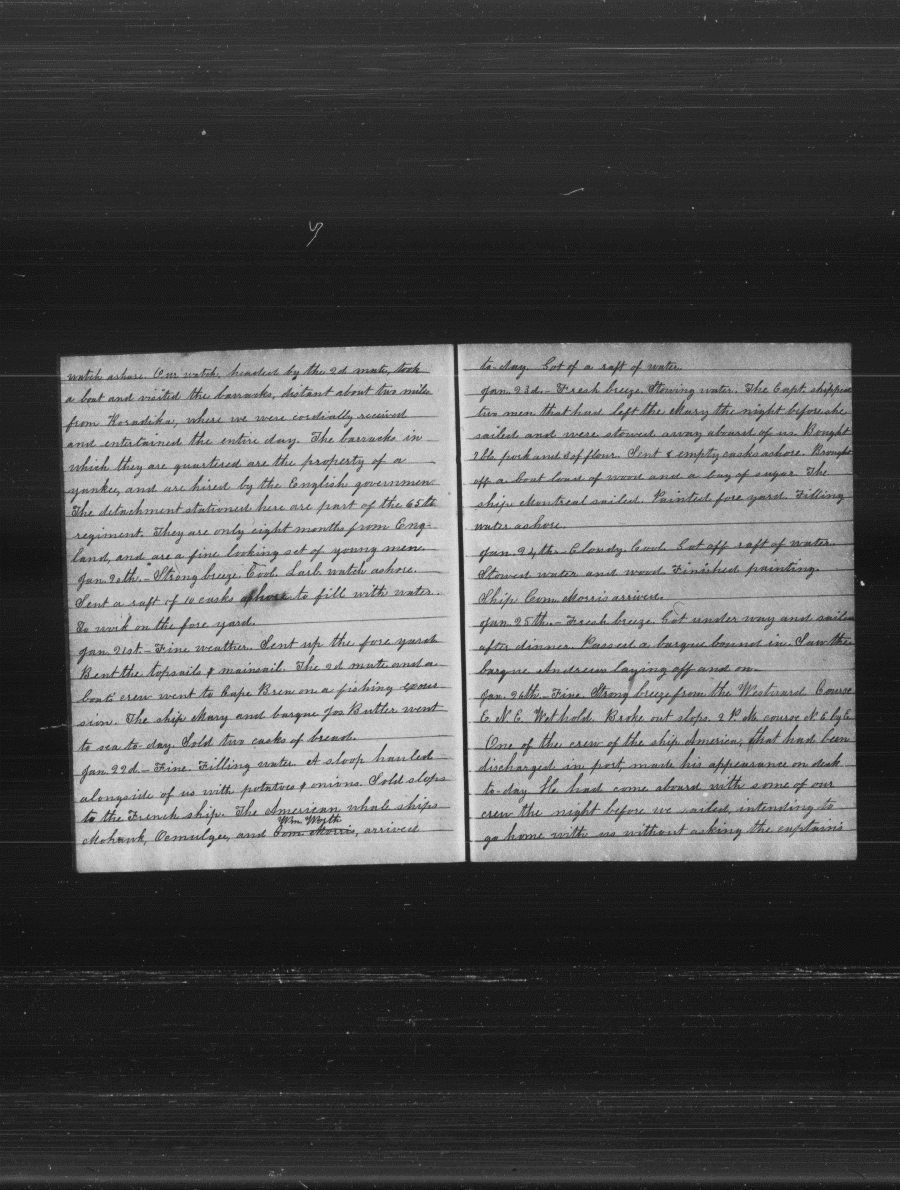 watch ashore. Our watch, headed by the 2d mate, took
a boat and visited the barracks, distant about two miles
from Koradika, where we were cordially received
and entertained the entire day. The barracks in
which they are quartered are the property of a
yankee, and are hired by the English governmen
The detachment stationed here are part of the 65th
regiment. They are only eight months from Eng-
land, and are a fine looking set of young men.
Jan. 20th.- Strong breeze. Cool. Larb. watch ashore.
Sent a raft of 10 casks ashore to fill with water.
To work on the fore yard.
Jan. 21st.- Fine weather. Sent up the fore yard
Bent the topsails & mainsail. The 2d mate and a
boat's crew went to Cape Bren on a fishing excur
sion. The ship Mary and barque Jos Butler went
to sea to-day. Sold two casks of bread.
Jan. 22d.- Fine. Filling water. A sloop hauled
alongside of us with potatoes & onions. Sold slops
to the French ship. The American whale ships
Wm Wirth
Mohawk, Ocmulgee, and Com. Morris, arrived
to-day. Got of a raft of water.
Jan. 23d.- Fresh breeze. Stowing water. The Capt. shipped
two men that had left the Mary the night before she
sailed and were stowed away aboard of us. Bought
2 bls pork and 8 of flour. Sent 8 empty casks ashore. Brought
off a boat load of wood and a bag of sugar. The
ship Montreal sailed. Painted fore yard. Filling
water ashore.
Jan. 24th.- Cloudy. Cool. Got off raft of water.
Stowed water and wood. Finished painting.
Ship Com. Morris arrived.
Jan. 25th.- Fresh breeze. Got under way and sailed
after dinner. Passed a barque bound in. Saw the
barque Andrews laying off and on.
Jan. 26th.- Fine. Strong breeze from the Westward. Course
E. N. E. Wet hold. Broke out slops. 2 P.M. course N. E. by E.
One of the crew of the ship America, that had been
discharged in port, made his appearance on deck
to-day. He had come aboard with some of our
crew the night before we sailed, intending to
go home with us without asking the captain's